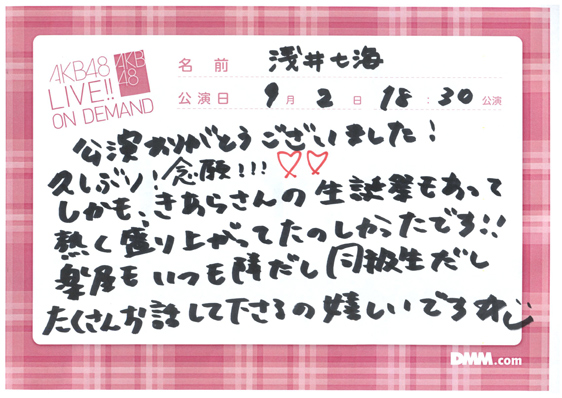 AKB48
LIVE!!
ON DEMAND
AKB
48
名前 浅井七海
公演日 9月2日 18:30公演
公演ありがとうございました!
久しぶり!念願!!!
しかも、きあらさんの生誕祭もあって
熱く盛り上がってたのしかったです!!
楽屋もいつも隣だし同級生だし
たくさんお話して下さるの嬉しいです
DMM.com